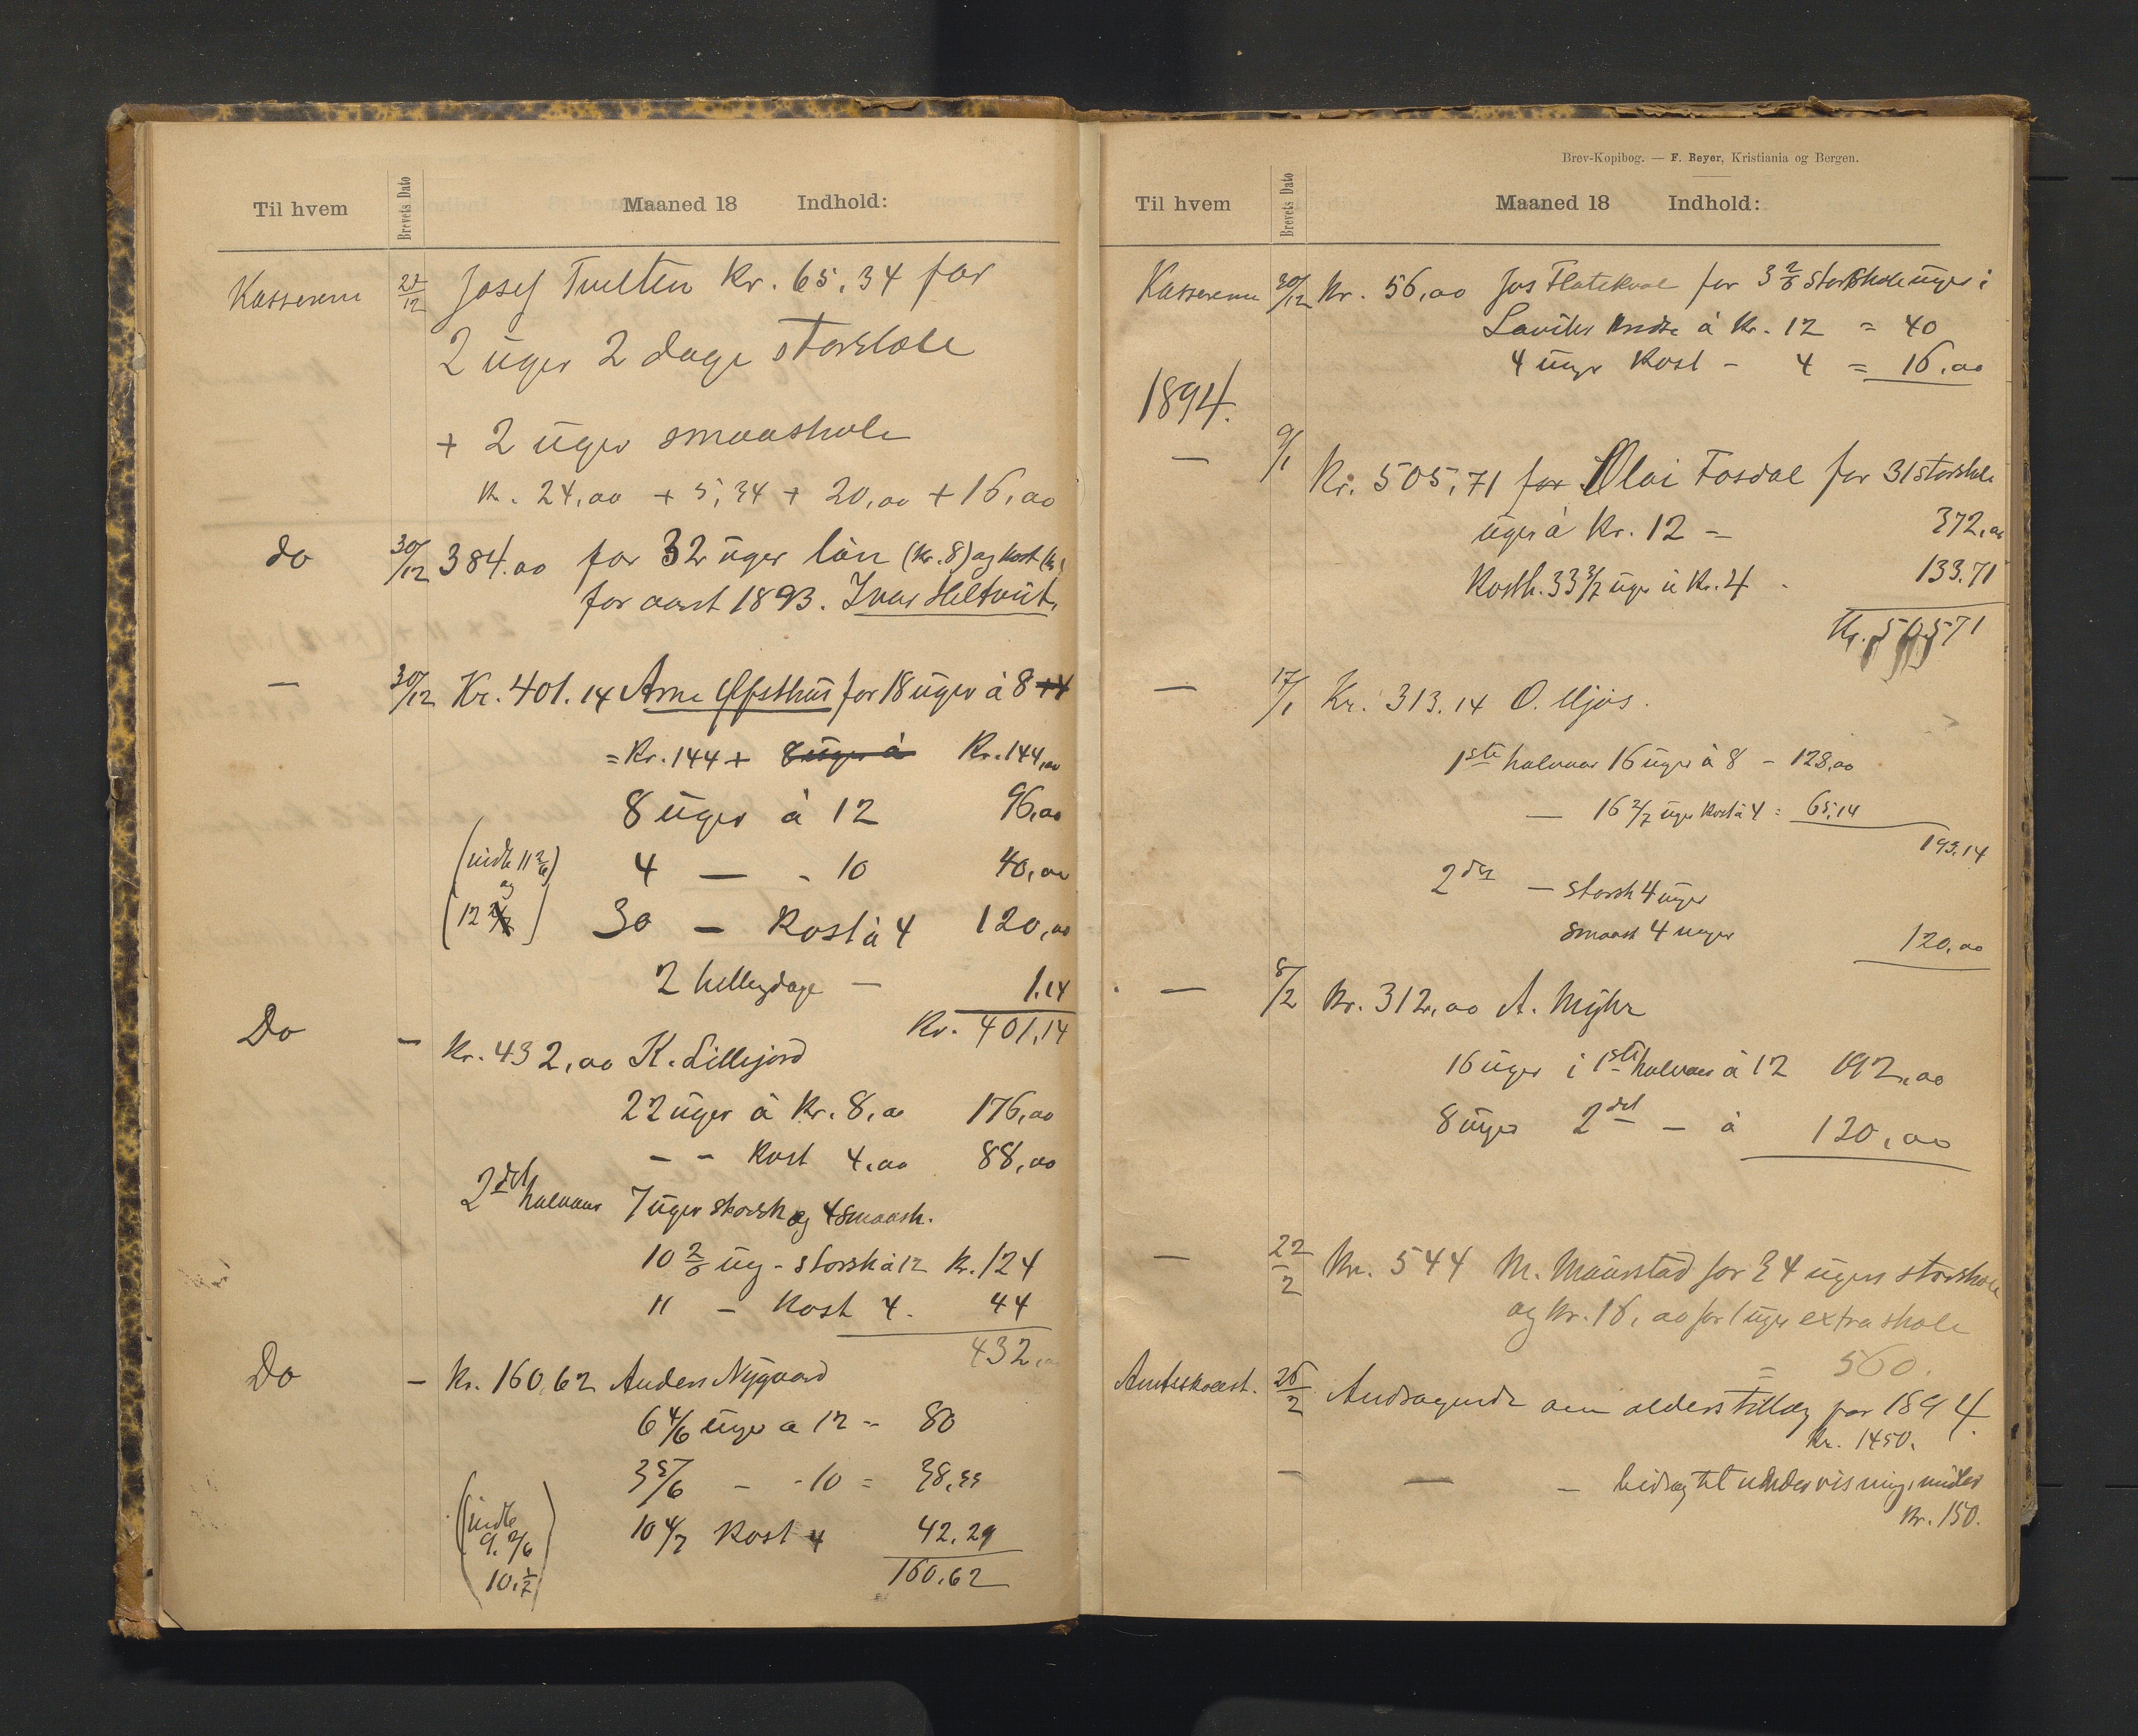 Til hvem
Brevets Dato
Maaned 18 Indhold:
Kassereren 22/12 Josef Tvelten Kr. 65,34 for
2 uger 2 dage storskole
+ 2 uger smaaskole
Kr. 24,00 + 5,34 + 20,00 + 16,00
do 30/12 384.00 for 32 uger lön (Kr. 8) og kost (Kr.
for aaret 1893. Ivar Heltveit.
— 30/12 Kr. 401.14 Arne Øfsthus for 18 uger à 8 +4
= Kr. 144 + 8 uger à Kr. 144,00
8 uger à 12 96,00
(indb 11 2/6) 4 — - 10 40,00
og
(12 2/7) 30 — Kost à 4 120,00
2 helligdage — 1.14
Kr. 401,14
Do — Kr. 432,00 K. Lillejord
22 uger à Kr. 8,00 176,00
- - Kost 4,00 88,00
2det halvaar 7 uger storsk og 4 smaask.
10 2/6 ug - storsk à 12 Kr. 124
11 — Kost 4. 44
432,00
Do — Kr. 160,62 Anders Nygaard
6 4/6 uger a 12 = 80
3 5/6 — - 10 = 38,33
(indb 10 4/7 Kost 4 42.29
9. 2/6
10. 1/7) 160.62
Brev-Kopibog. — F. Beyer, Kristiania og Bergen.
Til hvem
Brevets Dato
Maaned 18 Indhold:
Kassereren 30/12 Kr. 56,00 Jos Flatekval for 3 2/6 storskoleuger i
à Kr. 12 = 40
4 uger Kost - 4 = 16,00
1894.
— 9/1 Kr. 505,71 for Olai Fosdal for 31 storskole
uger à Kr. 12 — 372,00
Kosth. 33 3/7 uger à Kr. 4 - 133.71
Kr. 505,71
— 17/1 Kr. 313.14 O. Mjøs.
1ste halvaar 16 uger à 8 - 128,00
— 16 2/7 uger Kost à 4 = 65,14
193,14
2det — storsk 4 uger
smaask 4 uger 120,00
— 8/2 Kr. 312,00 A. Myhr
16 uger i 1ste halvaar à 12 192,00
8 uger 2det — à 120,00
— 22/2 Kr. 544 M. Maurstad for 34 ugers storskole
og Kr. 16,00 for 1 uges extraskole
= 560.
Amtsskolest. 26/2 Andragende om alderstillæg for 1894.
Kr. 1450.
— — — bidrag til undervisningsmidler
Kr. 150.